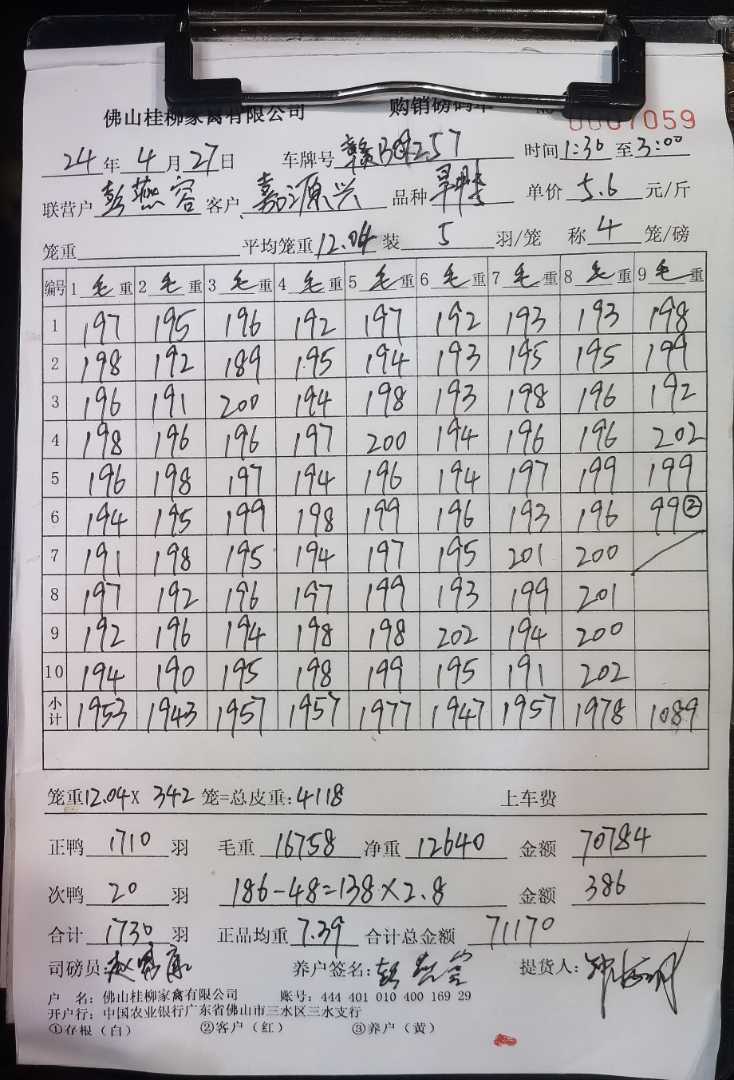 佛山桂柳家禽有限公司 购销磅码单 0007059
24年4月27日 车牌号 赣 时间1:30至3:00
联营户 彭燕容 客户 嘉源兴 品种 单价 5.6 元/斤
笼重 平均笼重 12.04 装 5 羽/笼 称 4 笼/磅
编号 1 毛重 2 毛重 3 毛重 4 毛重 5 毛重 6 毛重 7 毛重 8 毛重 9 毛重
1 197 195 196 192 197 192 193 193 198
2 198 192 189 195 194 193 195 195 199
3 196 191 200 194 198 193 198 196 192
4 198 196 196 197 200 194 196 196 202
5 196 198 197 194 196 194 197 199 199
6 194 195 199 198 199 196 193 196 99②
7 191 198 195 194 197 195 201 200
8 197 192 196 197 199 193 199 201
9 192 196 194 198 198 202 194 200
10 194 190 195 198 199 195 191 202
小计 1953 1943 1957 1957 1977 1947 1957 1978 1089
笼重12.04× 342 笼=总皮重:4118 上车费
正鸭 1710 羽 毛重 16758 净重 12640 金额 70784
次鸭 20 羽 186-48=138×2.8 金额 386
合计 1730 羽 正品均重 7.39 合计总金额 71170
司磅员: 养户签名: 彭燕容 提货人:
户 名: 佛山桂柳家禽有限公司 账号: 444 401 010 400 169 29
开户行: 中国农业银行广东省佛山市三水区三水支行
①存根(白) ②客户(红) ③养户(黄)